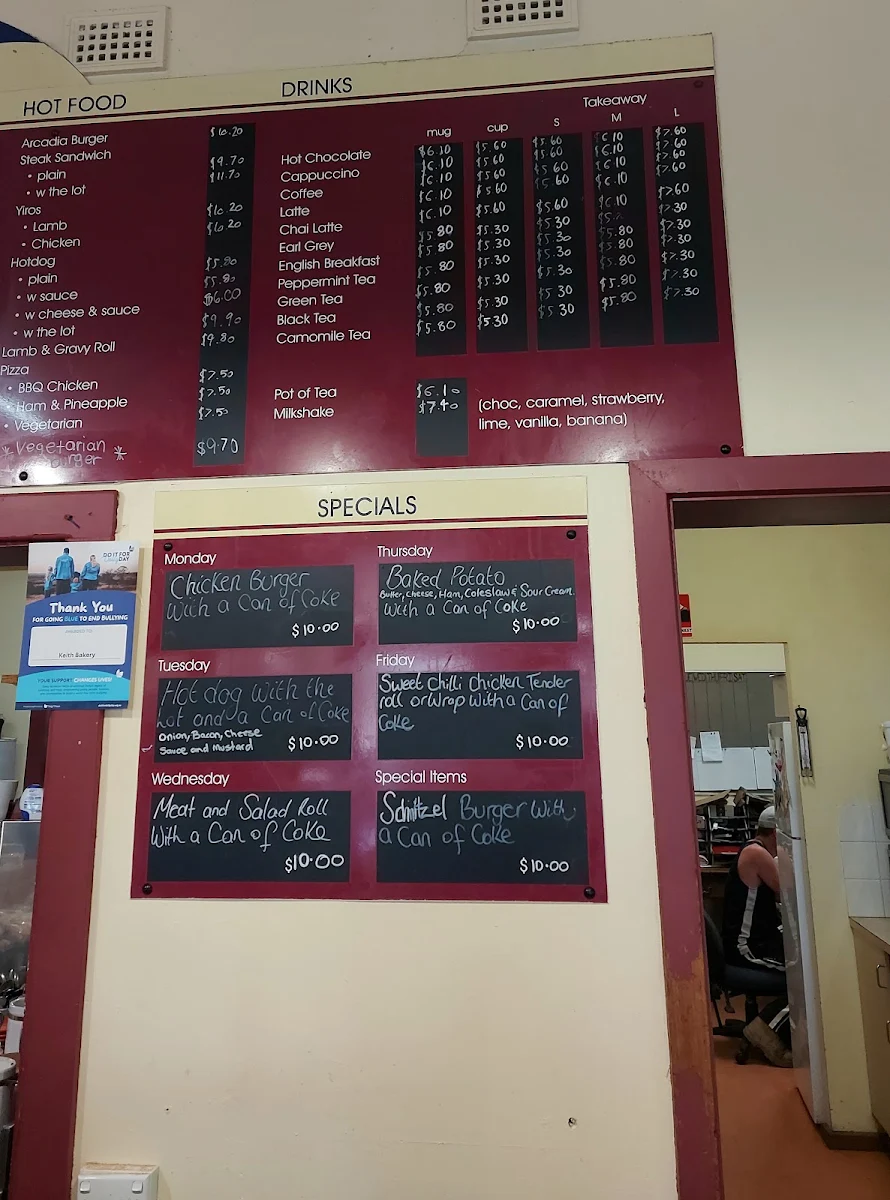 HOT FOOD
Arcadia Burger $16.20
Steak Sandwich
• plain $9.70
• w the lot $11.70
Yiros
• Lamb $16.20
• Chicken $16.20
Hotdog
• plain $5.80
• w sauce $5.80
• w cheese & sauce $6.00
• w the lot $9.90
Lamb & Gravy Roll $9.80
Pizza
• BBQ Chicken $7.50
• Ham & Pineapple $7.50
• Vegetarian $7.50
* Vegetarian Burger * $9.70
DRINKS
Takeaway
mug cup S M L
Hot Chocolate $6.10 $5.60 $5.60 $6.10 $7.60
Cappuccino $6.10 $5.60 $5.60 $6.10 $7.60
Coffee $6.10 $5.60 $5.60 $6.10 $7.60
Latte $6.10 $5.60 $5.60 $6.10 $7.60
Chai Latte $6.10 $5.60 $5.60 $6.10 $7.60
Earl Grey $5.80 $5.30 $5.30 $7.30
English Breakfast $5.80 $5.30 $5.30 $5.80 $7.30
Peppermint Tea $5.80 $5.30 $5.30 $5.80 $7.30
Green Tea $5.80 $5.30 $5.30 $5.80 $7.30
Black Tea $5.80 $5.30 $5.30 $5.80 $7.30
Camomile Tea $5.80 $5.30 $5.30 $5.80 $7.30
Pot of Tea $6.10
Milkshake $7.40
(choc, caramel, strawberry,
lime, vanilla, banana)
SPECIALS
Monday
Chicken Burger
With a Can of Coke
$10.00
Tuesday
Hot dog With the
Lot and a Can of Coke
Onion, Bacon, Cheese
Sauce and Mustard $10.00
Wednesday
Meat and Salad Roll
With a Can of Coke
$10.00
Thursday
Baked Potato
Butter, Cheese, Ham, Coleslaw & Sour Cream
With a Can of Coke
$10.00
Friday
Sweet Chilli Chicken Tender
roll or Wrap With a Can of
Coke
$10.00
Special Items
Schnitzel Burger With
a Can of Coke
$10.00
DO IT FOR
DAY
Thank You
FOR GOING BLUE TO END BULLYING
Keith Bakery
YOUR SUPPORT CHANGES LIVES!